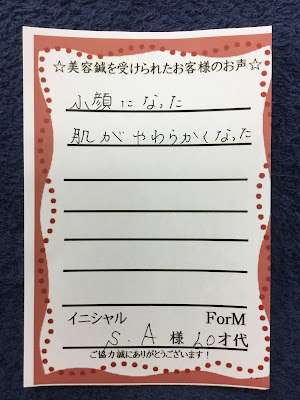 ☆美容鍼を受けられたお客様のお声☆
小顔になった
肌がやわらかくなった
イニシャル ForM
S.A 様 60才代
ご協力誠にありがとうございます！